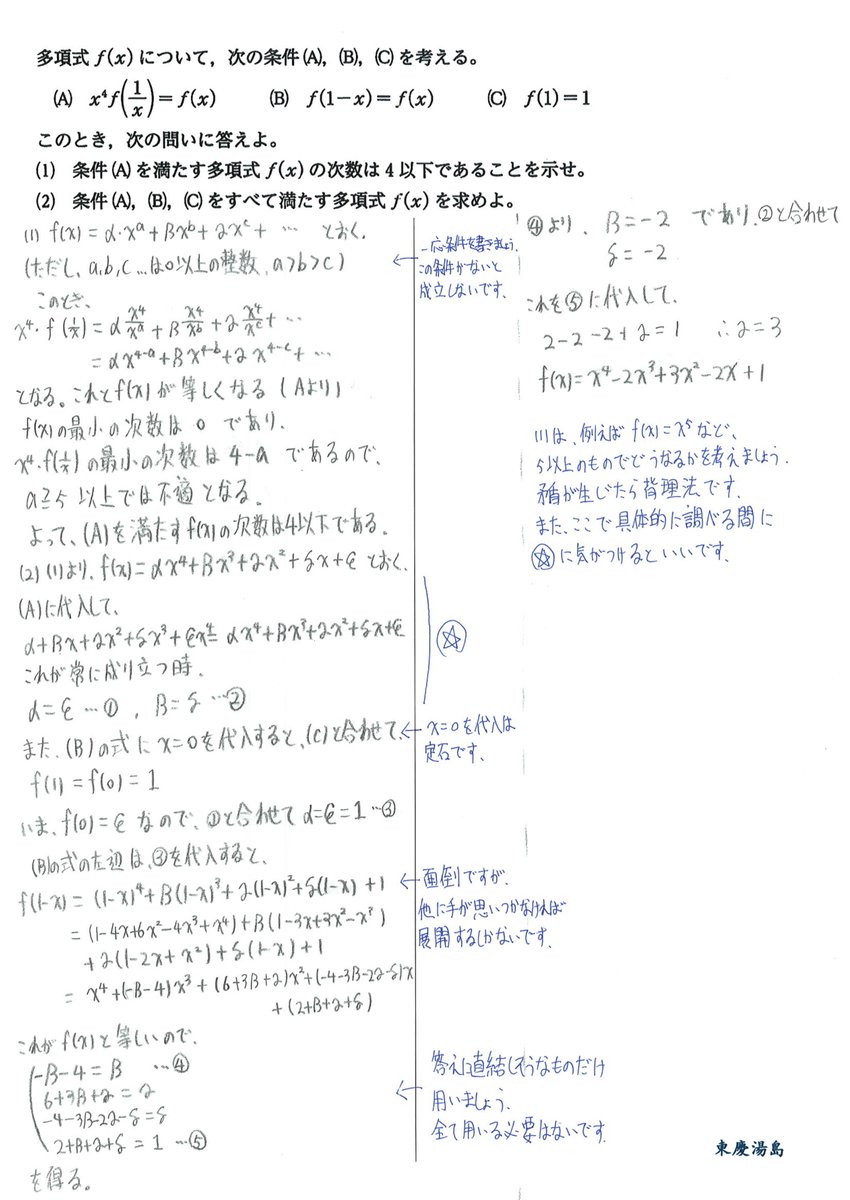 多項式 f(x) について，次の条件 (A)，(B)，(C) を考える。
(A) x⁴f(1/x)=f(x)  (B) f(1−x)=f(x)  (C) f(1)=1
このとき，次の問いに答えよ。
(1) 条件 (A) を満たす多項式 f(x) の次数は 4 以下であることを示せ。
(2) 条件 (A)，(B)，(C) をすべて満たす多項式 f(x) を求めよ。
(1) f(x) = α・xᵃ+βxᵇ+γxᶜ+ … とおく.
(ただし、a,b,c…は0以上の整数、a>b>c)
このとき、
x⁴・f(1/x) = α x⁴/xᵃ + β x⁴/xᵇ + γ x⁴/xᶜ + …
= αx⁴⁻ᵃ+βx⁴⁻ᵇ+γx⁴⁻ᶜ+ …
となる。これとf(x)が等しくなる (Aより)
f(x)の最小の次数は 0 であり、
x⁴・f(1/x)の最小の次数は 4-a であるので、
a≧5 以上では不適となる。
よって、(A)を満たすf(x)の次数は4以下である。
(2) (1)より、f(x)=αx⁴+βx³+γx²+δx+ε とおく、
(A)に代入して、
α+βx+γx²+δx³+εx⁴= αx⁴+βx³+γx²+δx+ε
これが常に成り立つ時、
α=ε …①, β=δ …②
また、(B)の式に x=0を代入すると、(C)と合わせて、
f(1)=f(0)=1
いま、f(0)=ε なので、①と合わせて α=ε=1 …③
(B)の式の左辺は、③を代入すると、
f(1-x) = (1-x)⁴+β(1-x)³+γ(1-x)²+δ(1-x)+1
= (1-4x+6x²-4x³+x⁴)+β(1-3x+3x²-x³)
+γ(1-2x+x²)+δ(1-x)+1
= x⁴+(-β-4)x³+(6+3β+γ)x²+(-4-3β-2γ-δ)x
+(2+β+γ+δ)
これがf(x)と等しいので、
-β-4=β …④
6+3β+γ=γ
-4-3β-2γ-δ=δ
2+β+γ+δ=1 …⑤
を得る。
←一応条件を書きましょう。
この条件がないと
成立しないです。
☆
← x=0を代入は
定石です。
← 面倒ですが、
他に手が思いつかなければ
展開するしかないです。
← 答えに直結しそうなものだけ
用いましょう。
全て用いる必要はないです。
④より、β=-2 であり、②と合わせて
δ=-2
これを⑤に代入して、
2-2-2+γ=1 ∴γ=3
f(x)=x⁴-2x³+3x²-2x+1
(1)は、例えば f(x)=x⁵など、
5以上のものでどうなるかを考えましょう.
矛盾が生じたら背理法です。
また、ここで具体的に調べる間に
☆に気がつけるといいです。
東慶湯島